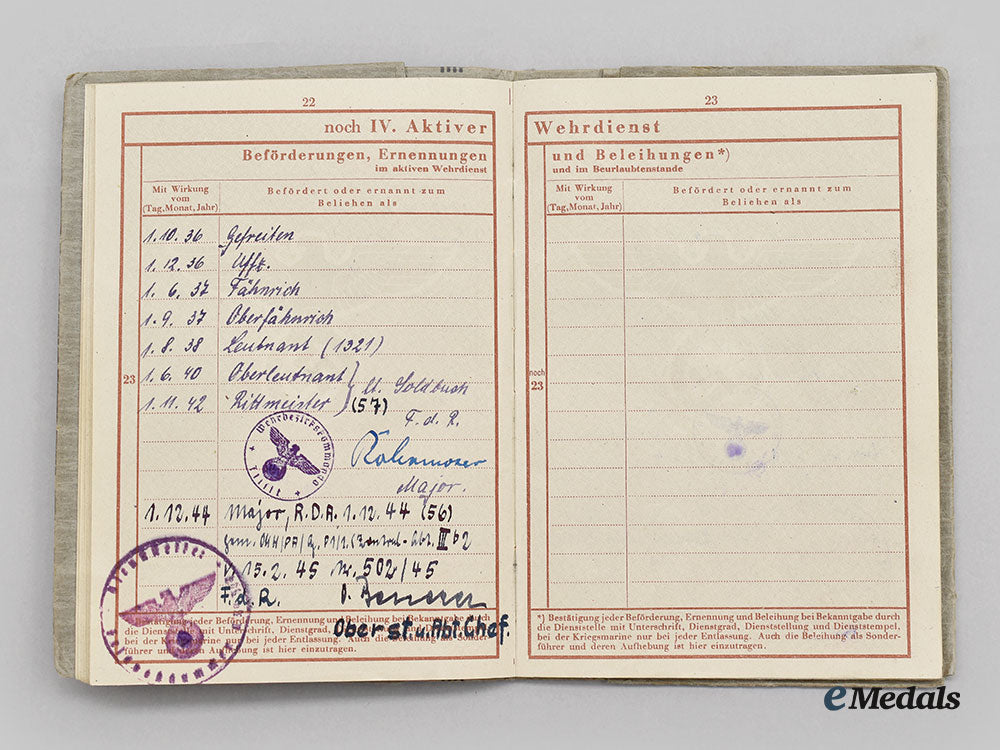 22
noch IV. Aktiver
Beförderungen, Ernennungen
im aktiven Wehrdienst
Mit Wirkung
vom
(Tag, Monat, Jahr)
Befördert oder ernannt zum
Beliehen als
1.10.36 Gefreiten
1.12.36 Uffz.
1.6.37 Fähnrich
1.9.37 Oberfähnrich
1.8.38 Leutnant (1321)
1.6.40 Oberleutnant } lt. Soldbuch
23
1.11.42 Rittmeister (57)
F. d. R.
Wehrbezirkskommando
Major.
1.12.44 Major, R.D.A. 1.12.44 (56)
IIIb2
v. 15.2.45 Nr. 502/45
F.d.R.
Oberst u. Abt. Chef.
Bestätigung jeder Beförderung, Ernennung und Beleihung bei Bekanntgabe durch
die Dienststelle mit Unterschrift, Dienstgrad, Dienststellung und Dienststempel,
bei der Kriegsmarine nur bei jeder Entlassung. Auch die Beleihung als Sonder-
führer und deren Aufhebung ist hier einzutragen.
23
Wehrdienst
und Beleihungen*)
und im Beurlaubtenstande
Mit Wirkung
vom
(Tag, Monat, Jahr)
Befördert oder ernannt zum
Beliehen als
noch
23
*) Bestätigung jeder Beförderung, Ernennung und Beleihung bei Bekanntgabe durch
die Dienststelle mit Unterschrift, Dienstgrad, Dienststellung und Dienststempel,
bei der Kriegsmarine nur bei jeder Entlassung. Auch die Beleihung als Sonder-
führer und deren Aufhebung ist hier einzutragen.
eMedals